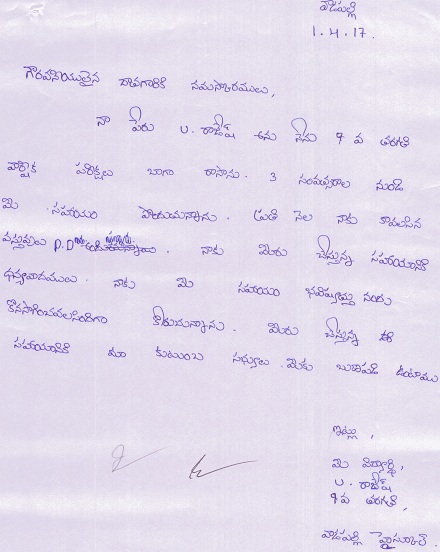 వాడపల్లి
1.4.17.
గౌరవనీయులైన దాతగారికి నమస్కారములు,
నా పేరు U. రాజేష్ అను నేను 9 వ తరగతి
వార్షిక పరిక్షలు బాగా రాసాను. 3 సంవత్సరాల నుండి
మీ సహాయం పొందుచున్నాను. ప్రతి నెల నాకు కావలసిన
వస్తువులు P.D . నాకు మీరు చేస్తున్న సహాయానికి
ధన్యవాదములు. నాకు మీ సహాయం భవిష్యత్తు నందు
కొనసాగించవలసిందిగా కోరుచున్నాను. మీరు చేస్తున్న ఈ
సహాయానికి మా కుటుంబ సభ్యులు మీకు ఋణపడి ఉంటాము
ఇట్లు,
మీ విద్యార్థి,
U. రాజేష్
9వ తరగతి,
వాడపల్లి హైస్కూల్.